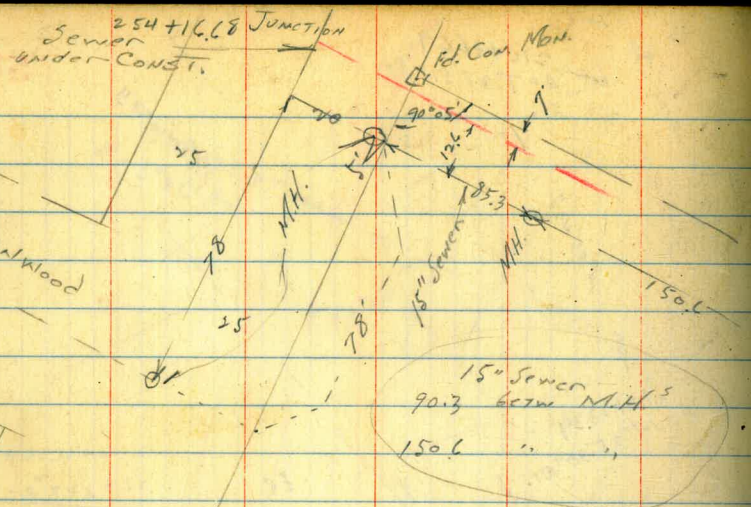 254+16.68 JUNCTION
Sewer
under CONST.
Fd. Con. Mon.
20
90°05'
12.6
25
5'
85.3
M.H.
78
15" Sewer
M.H.
150.6
25
78'
15" Sewer
90.3 betw M.H.s
150.6 " "